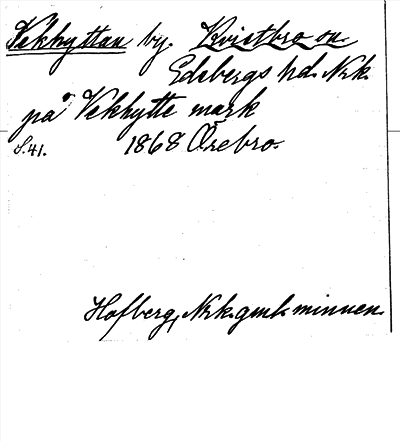 Vekhyttan by. Kvistbro sn.
Edsbergs hd. Nrk.
på Vekhytte mark
S.41. 1868 Örebro.
Hofberg, Nrk. gmla minnen.